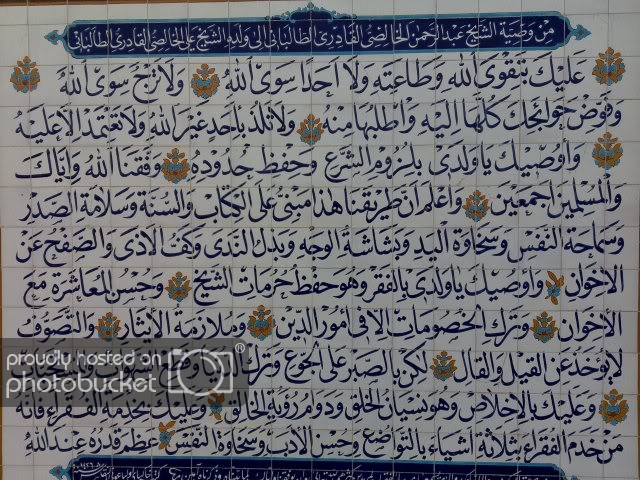 من وصية الشيخ عبد الرحمن الخالصي القادري الطالباني الى ولده الشيخ علي الخالصي القادري الطالباني
عليك بتقوى الله وطاعته ولا احدا سوى الله ولا ترج سوى الله
وفوض حوائجك كلها اليه واطلبها منه ولا تلذ باحد غير الله ولا تعتمد الا عليه
واوصيك يا ولدي بلزوم الشرع وحفظ حدوده وفقنا الله واياك
والمسلمين اجمعين واعلم ان طريقنا هذا مبني على الكتاب والسنة وسلامة الصدر
وسماحة النفس وسخاوة اليد وبشاشة الوجه وبذل الندى وكف الاذى والصفح عن
الاخوان واوصيك يا ولدي بالفقر وهو حفظ حرمات الشيخ وحسن المعاشرة مع
الاخوان وترك الخصومات الا في امور الدين وملازمة الايثار والتصوف
لا يؤخذ عن القيل والقال لكن بالصبر على الجوع وترك الدنيا وقطع
وعليك بالاخلاص وهو نسيان الخلق ودوم رؤية الخالق وعليك بخدمة الفقراء فانه
من خدم الفقراء بثلاثة اشياء بالتواضع وحسن الادب وسخاوة النفس عظم قدره عند الله
proudly hosted on
photobucket